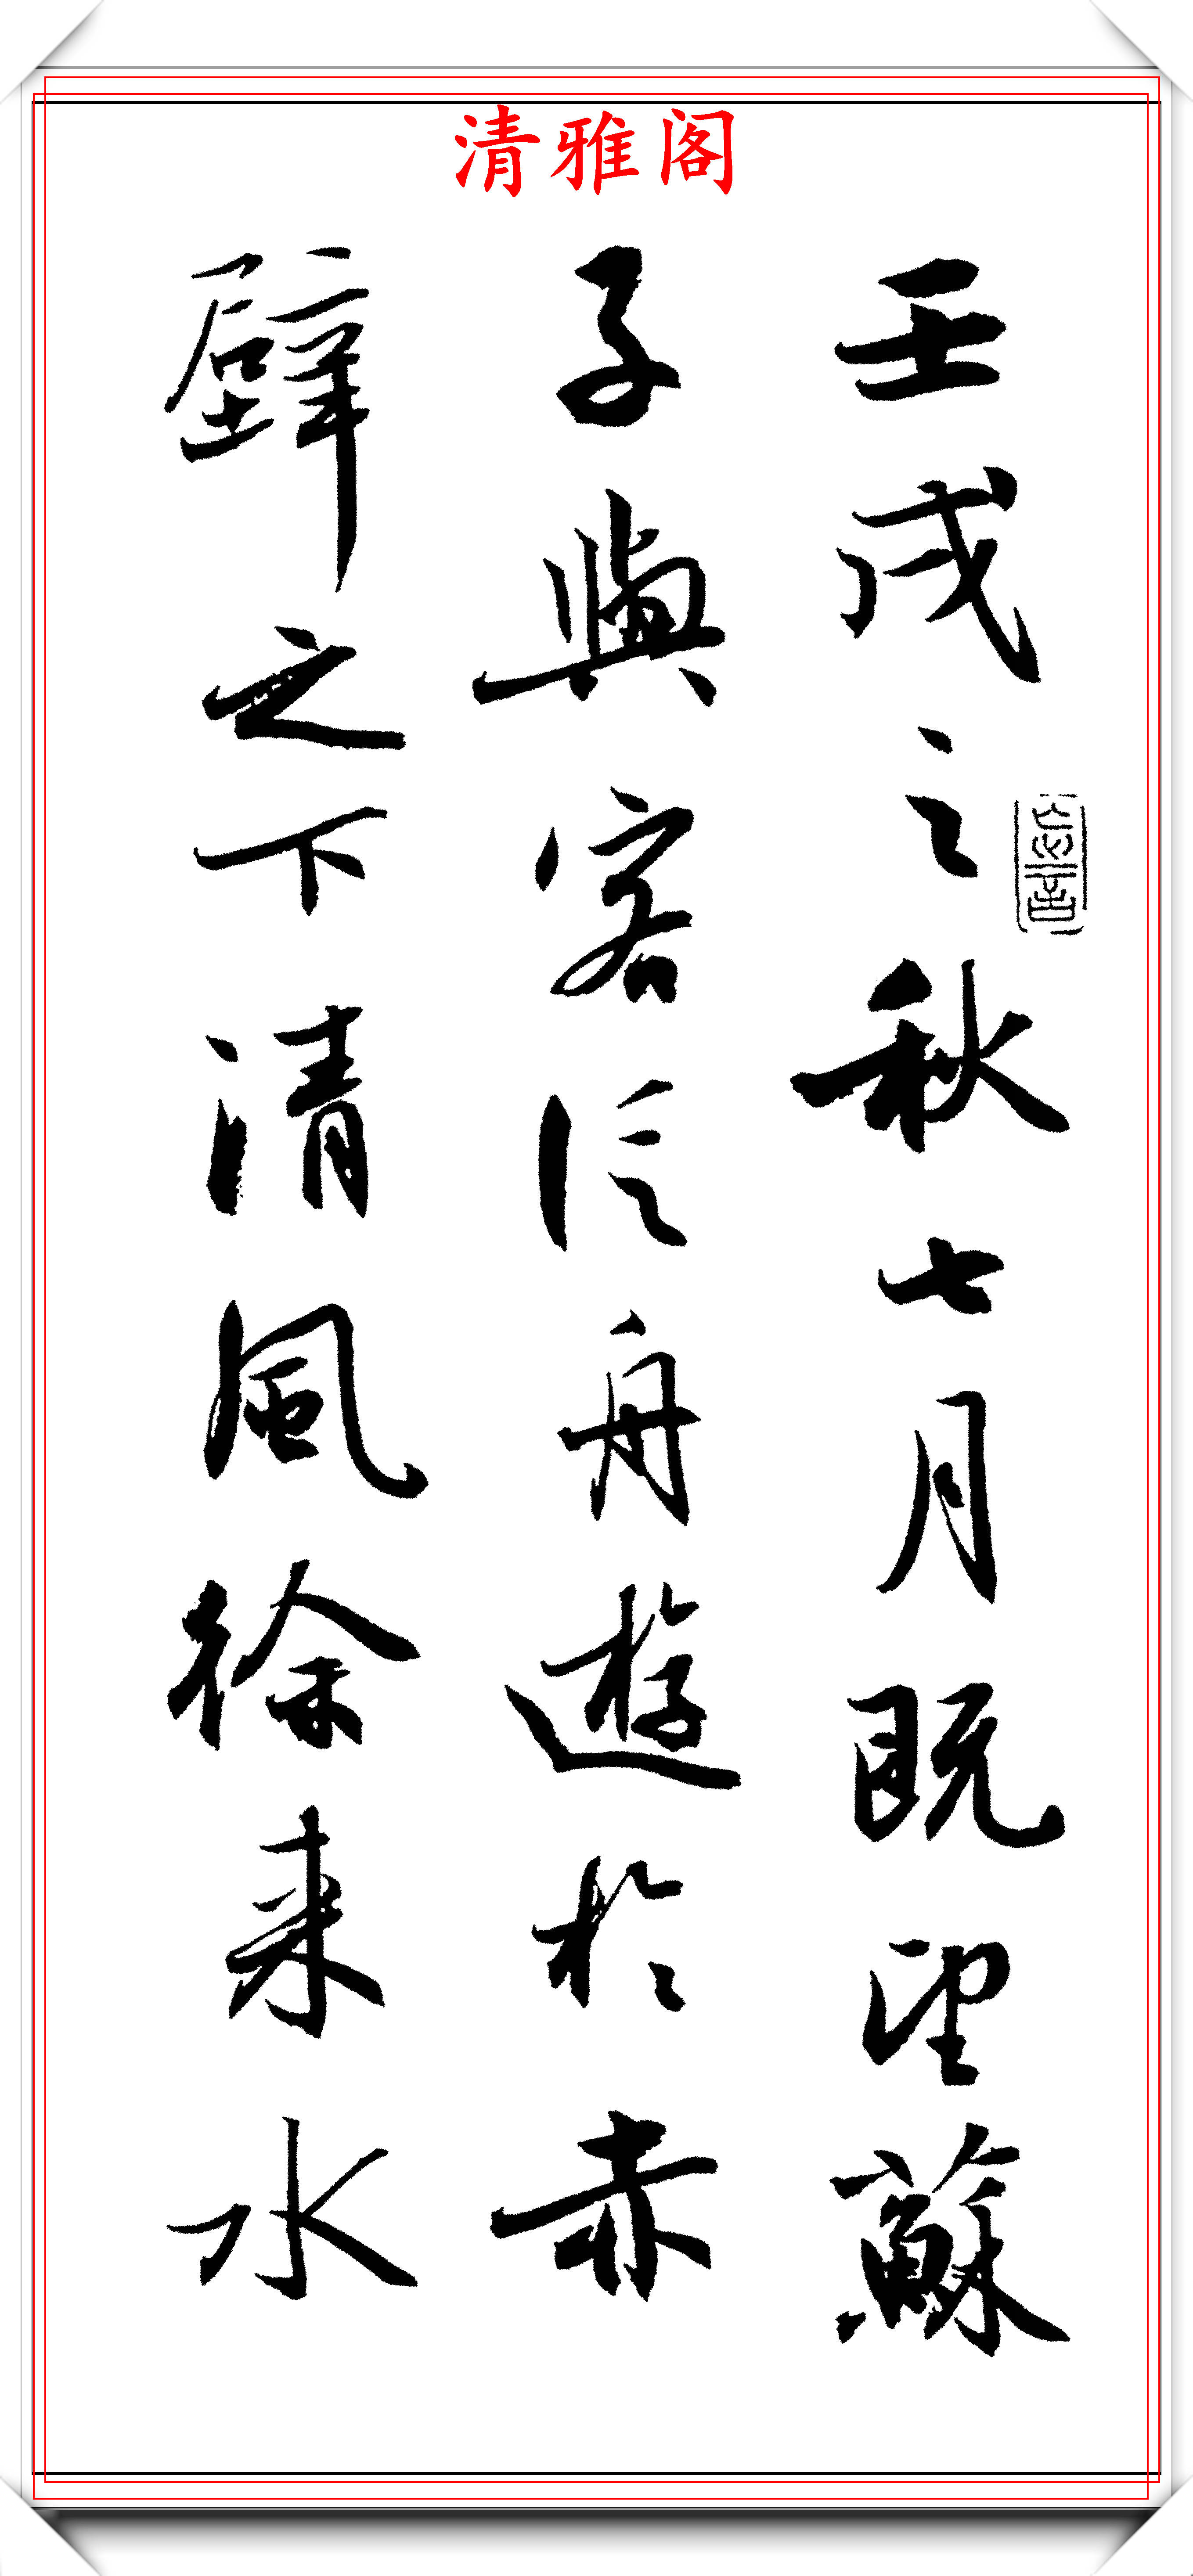 清雅阁
壬戌之秋七月既望蘇
子與客泛舟遊於赤
壁之下清風徐来水